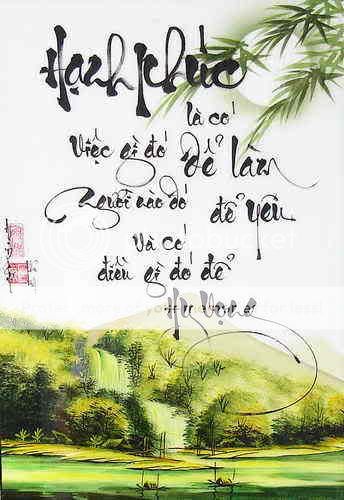 Hạnh phúc
là có
Việc gì đó để làm
Người nào đó để yêu
Và có
điều gì đó để
Hy vọng